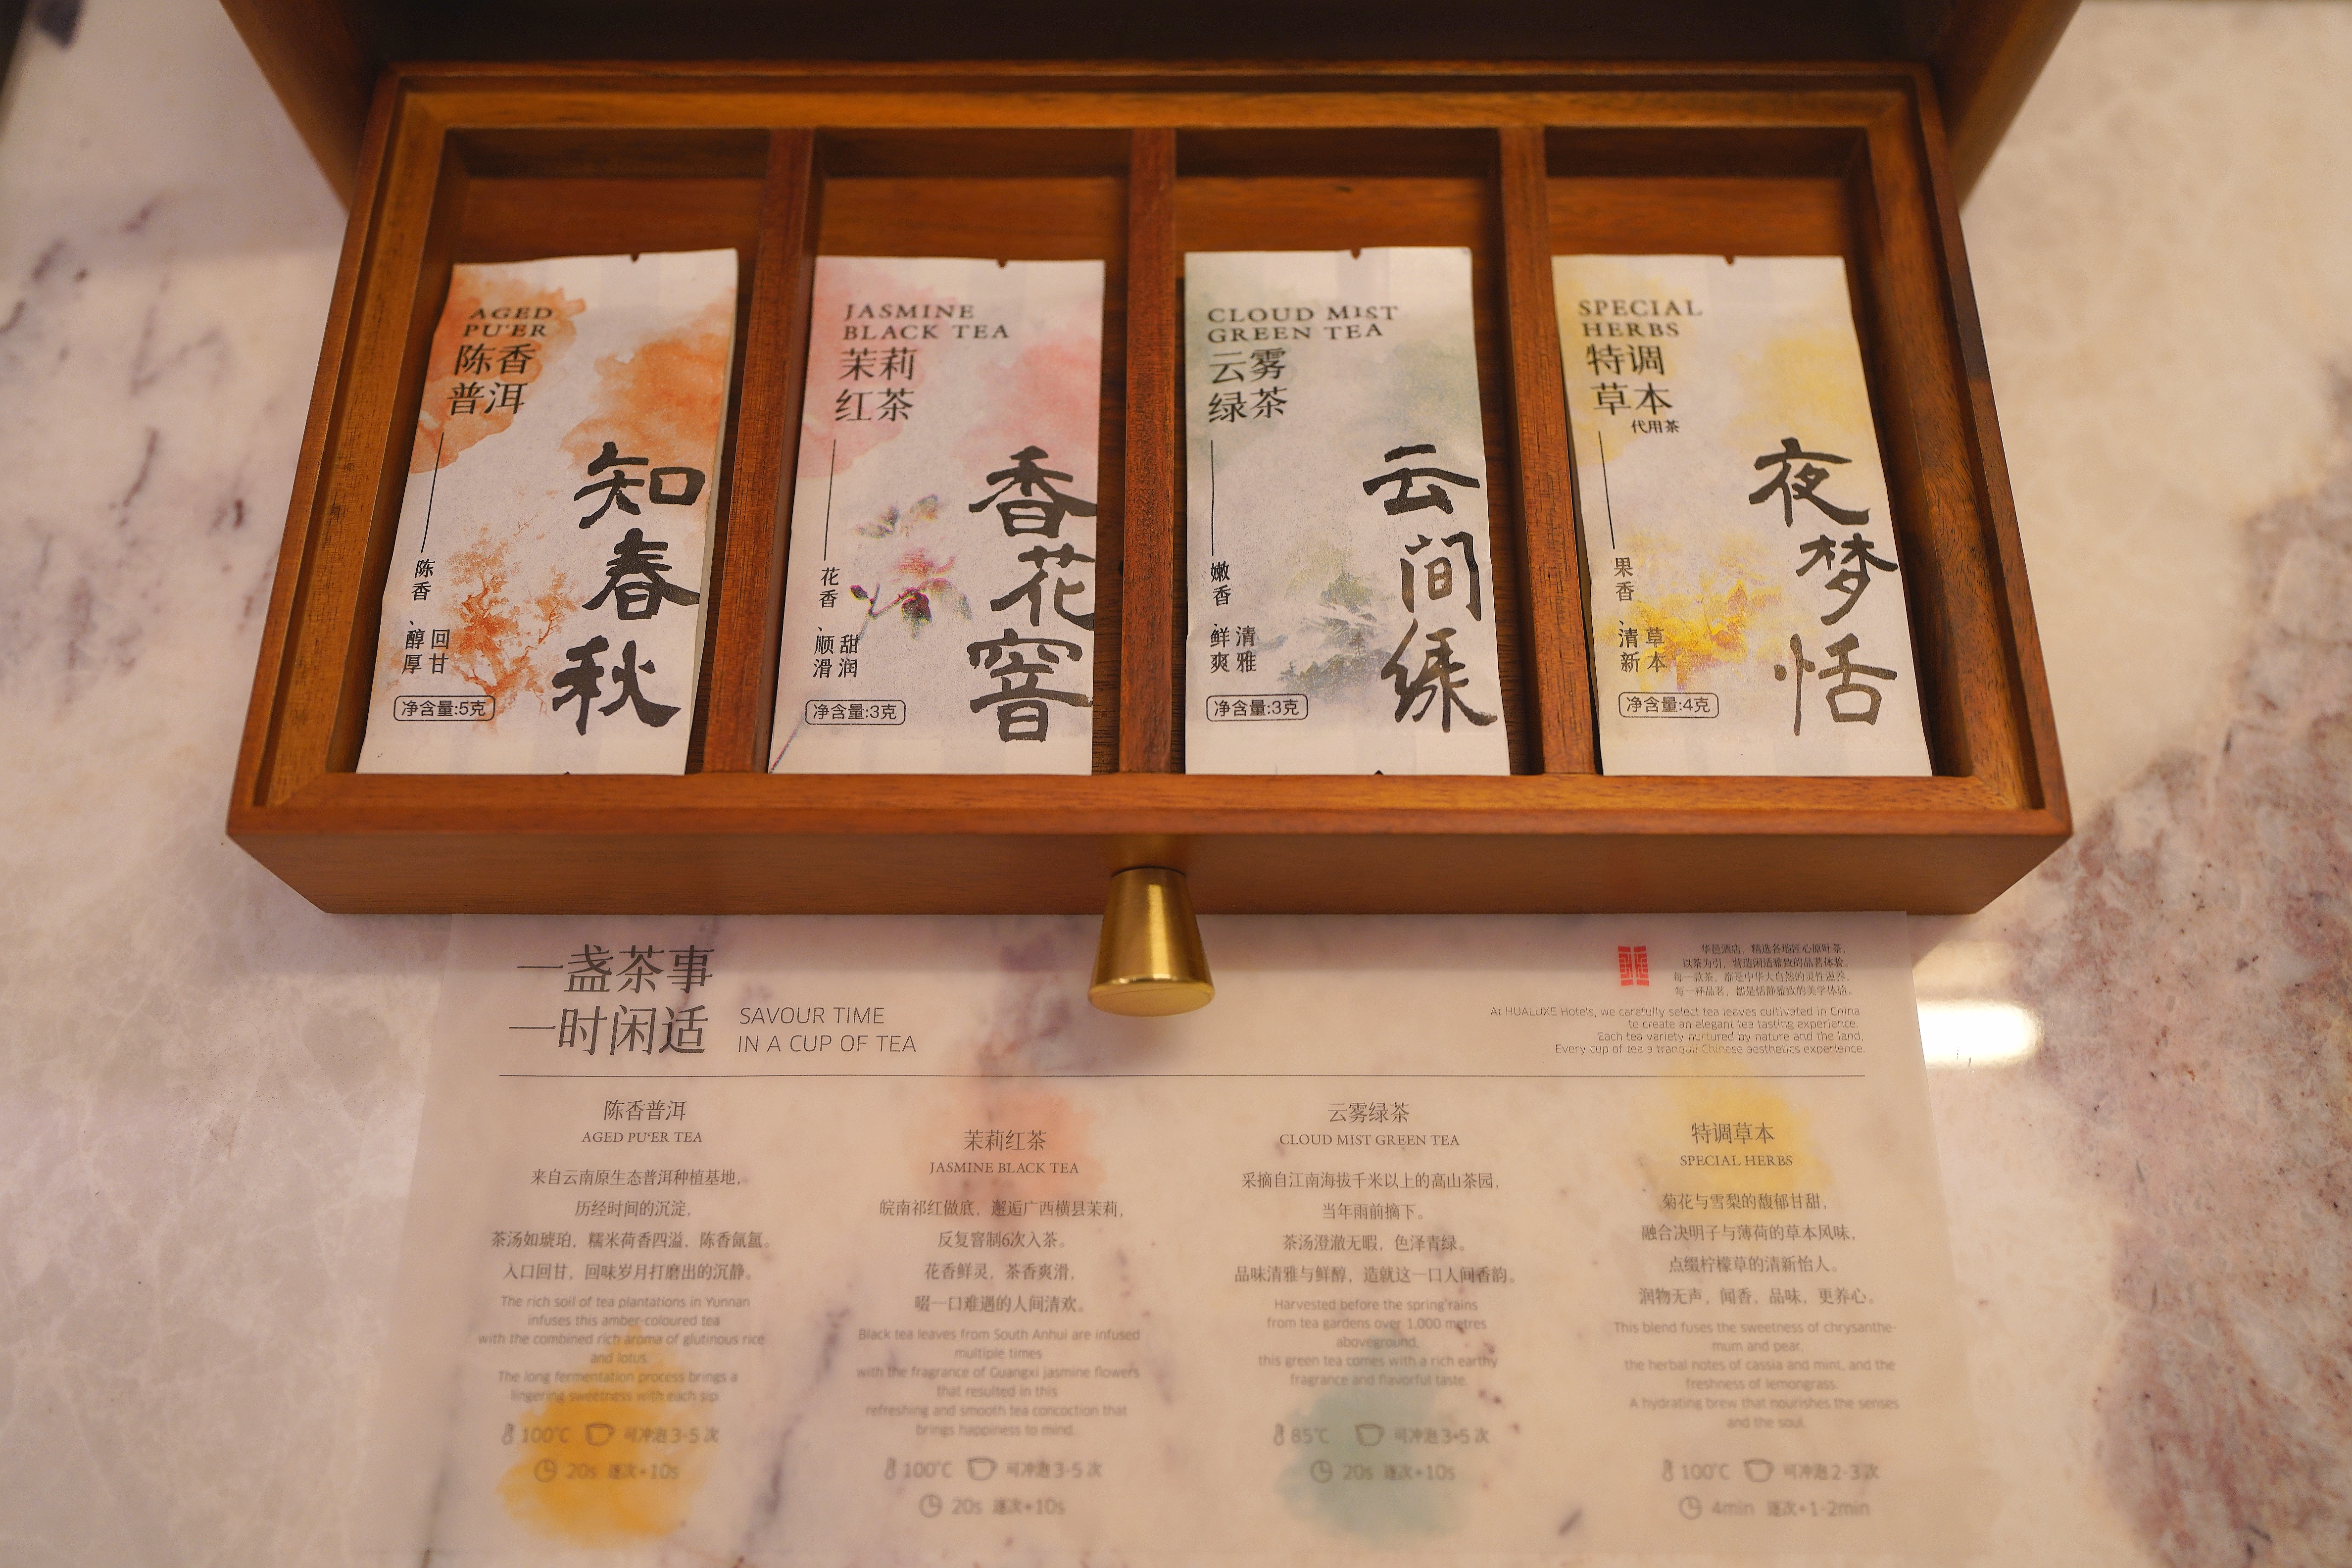 AGED
PU'ER
陈香
普洱
知春秋
陈香、醇厚
回甘
净含量:5克
JASMINE
BLACK TEA
茉莉
红茶
香花窨
花香、顺滑
甜润
净含量:3克
CLOUD MIST
GREEN TEA
云雾
绿茶
云间绿
嫩香、鲜爽
清雅
净含量:3克
SPECIAL
HERBS
特调
草本
代用茶
夜梦恬
果香、清新
草本
净含量:4克
一盏茶事
一时闲适
SAVOUR TIME
IN A CUP OF TEA
华邑酒店，精选各地匠心原叶茶，
以茶为引，营造闲适雅致的品茗体验。
每一款茶，都是中华大自然的灵性滋养，
每一杯品茗，都是恬静雅致的美学体验。
At HUALUXE Hotels, we carefully select tea leaves cultivated in China
to create an elegant tea tasting experience.
Each tea variety nurtured by nature and the land,
Every cup of tea a tranquil Chinese aesthetics experience.
陈香普洱
AGED PU'ER TEA
来自云南原生态普洱种植基地，
历经时间的沉淀，
茶汤如琥珀，糯米荷香四溢，陈香氤氲。
入口回甘，回味岁月打磨出的沉静。
The rich soil of tea plantations in Yunnan
infuses this amber-coloured tea
with the combined rich aroma of glutinous rice
and lotus.
The long fermentation process brings a
lingering sweetness with each sip.
100℃ 可冲泡3-5次
20s 逐次+10s
茉莉红茶
JASMINE BLACK TEA
皖南祁红做底，邂逅广西横县茉莉，
反复窨制6次入茶。
花香鲜灵，茶香爽滑，
啜一口难遇的人间清欢。
Black tea leaves from South Anhui are infused
multiple times
with the fragrance of Guangxi jasmine flowers
that resulted in this
refreshing and smooth tea concoction that
brings happiness to mind.
100℃ 可冲泡3-5次
20s 逐次+10s
云雾绿茶
CLOUD MIST GREEN TEA
采摘自江南海拔千米以上的高山茶园，
当年雨前摘下。
茶汤澄澈无暇，色泽青绿。
品味清雅与鲜醇，造就这一口人间香韵。
Harvested before the spring rains
from tea gardens over 1,000 metres
aboveground,
this green tea comes with a rich earthy
fragrance and flavorful taste.
85℃ 可冲泡3-5次
20s 逐次+10s
特调草本
SPECIAL HERBS
菊花与雪梨的馥郁甘甜，
融合决明子与薄荷的草本风味，
点缀柠檬草的清新怡人。
润物无声，闻香，品味，更养心。
This blend fuses the sweetness of chrysanthe-
mum and pear,
the herbal notes of cassia and mint, and the
freshness of lemongrass.
A hydrating brew that nourishes the senses
and the soul.
100℃ 可冲泡2-3次
4min 逐次+1-2min